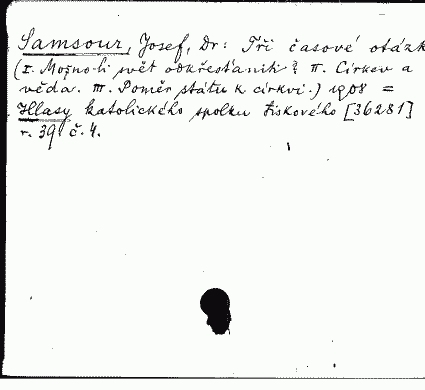 Samsour, Josef, Dr: Tři časové otázk
(I. Možno-li svět odkřesťanit? II. Církev a
věda. III. Poměr státu k církvi.) 1908 =
Hlasy katolického spolku tiskového [36281]
r. 39 č. 4.